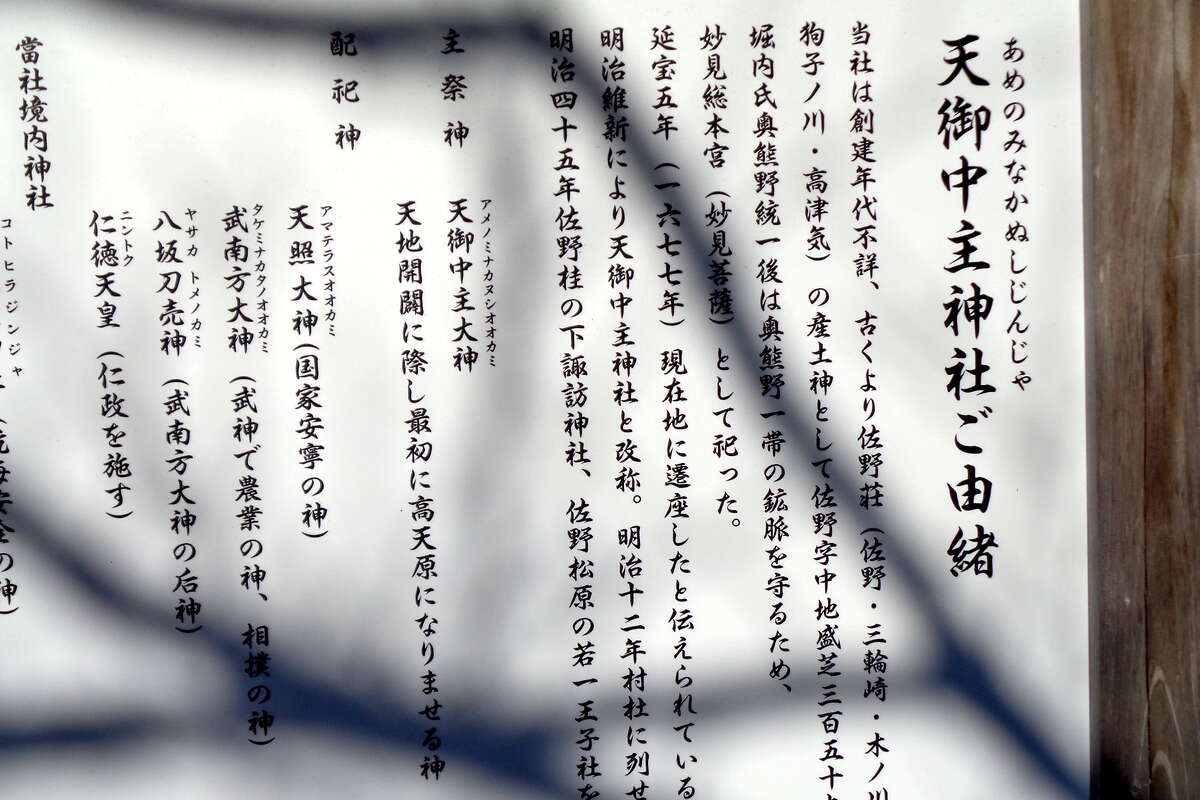 あめのみなかぬしじんじゃ
天御中主神社ご由緒
当社は創建年代不詳、古くより佐野荘（佐野・三輪崎・木ノ川
狗子ノ川・高津気）の産土神として佐野字中地盛芝三百五十
堀内氏奥熊野統一後は奥熊野一帯の鉱脈を守るため、
妙見総本宮（妙見菩薩）として祀った。
延宝五年（一六七七年）現在地に遷座したと伝えられている
明治維新により天御中主神社と改称。明治十二年村社に列せ
明治四十五年佐野桂の下諏訪神社、佐野松原の若一王子社を
主祭神
アメノミナカヌシオオカミ
天御中主大神
天地開闢に際し最初に高天原になりませる神
配祀神
アマテラスオオカミ
天照大神（国家安寧の神）
タケミナカタノオオカミ
武南方大神（武神で農業の神、相撲の神）
ヤサカトメノカミ
八坂刀売神（武南方大神の后神）
ニントク
仁徳天皇（仁政を施す）
當社境内神社
コトヒラジンジャ
安全の神）